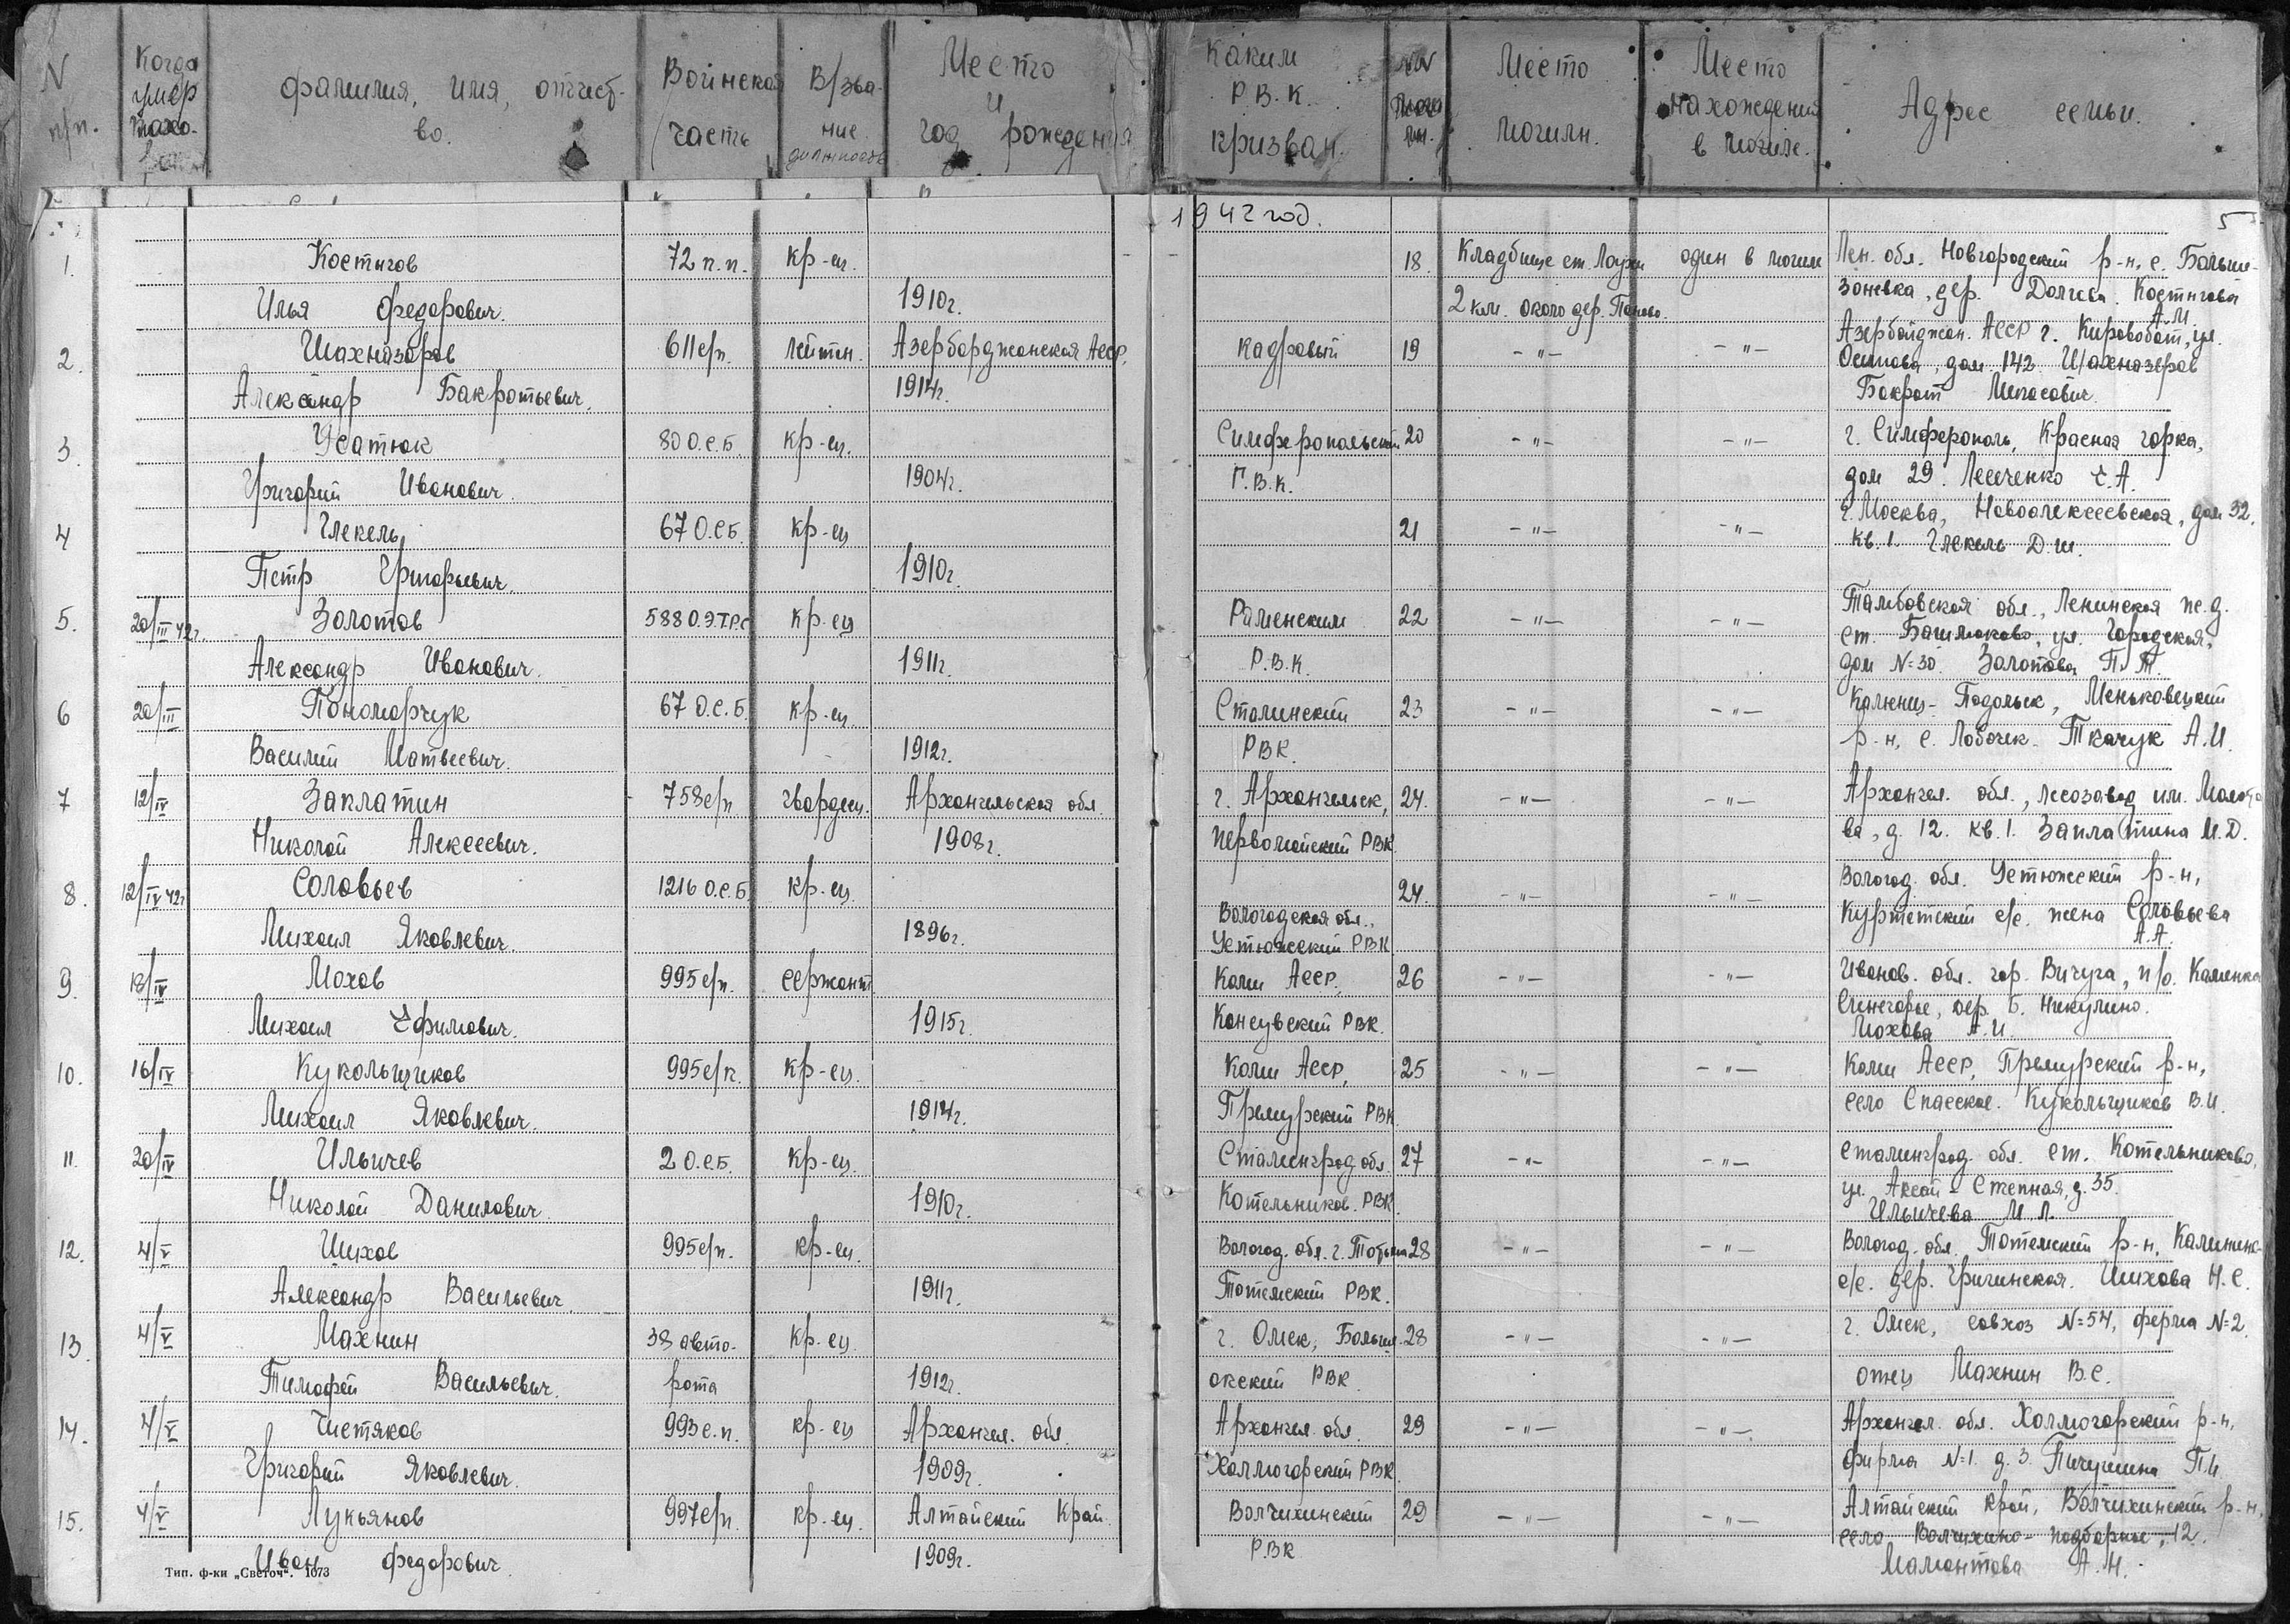 N п/п.
Когда умер похо-
фамилия, имя, отчест-
во.
Воинская
часть
В/зва-
ние
должность
Место
и
год рождения
Каким
Р.В.К.
призван.
NN
моги
лы.
Место
могилы.
Место
нахождения
в могиле.
Адрес семьи.
1942 год.
5
1. Костыгов 72 п.п. кр-ец. 18. Кладбище ст. Лоухи один в могиле Лен. обл. Новгородский р-н, с.
Илья Федорович. 1910г. 2 км. около дер. дер. Костыгова
А.М.
2. Шахназаров 611 с/п. лейтен. Азербарджанская АССР, кадровый 19 -"- -"- Азербайджан. АССР г. Кировобат, ул.
Александр Бакратьевич. 1914г. дом. 142. Шахназаров
Бакрат
3. Усатюк 80 О.С.Б. кр-ец. Симферопольский 20 -"- -"- г. Симферополь, Красная горка,
Григорий Иванович. 1904г. Г.В.К. дом 29. Е.А.
4 Глекель 67 О.С.Б. кр-ец 21 -"- -"- г. Москва, Новоалексеевская, дом 32.
Петр Григорьевич. 1910г. кв. 1. Глекель Д.Ш.
5. 20/III 42г. Золотов 588 О.Э.Т.Р.С кр-ец Раменским 22 -"- -"- Тамбовская обл., Ленинская ж.д.
Александр Иванович. 1911г. Р.В.К. ст. Башмаково, ул. Городская,
дом N=30. Золотова П.Т.
6 20/III Пономарчук 67 О.С.Б. кр-ец. Сталинский 23 -"- -"- Каменец-Подольск, Меньковецкий
Василий Матвеевич. 1912г. РВК. р-н, с. Лобочек. Ткачук А.И.
7 12/IV Заплатин 758 с/п гвардеец. Архангельская обл. г. Архангельск, 24. -"- -"- Архангел. обл., лесозавод им. Молото
Николай Алексеевич. 1908г. Первомайский РВК. ва, д. 12. кв. 1. Заплатина М.Д.
8. 12/IV 42г Соловьев 1216 О.С.Б кр-ец. 24. -"- -"- Вологод. обл. Устюжский р-н,
Михаил Яковлевич. 1896г. Вологодская обл., Устюжский РВК с/с. жена Соловьева
А.А.
9. 18/IV Мохов 995 с/п. сержант. Коми АССР, 26 -"- -"- Иванов. обл. гор. Вичуга, п/о. Каменка
Михаил Ефимович. 1915г. РВК. дер. Б. Никулино.
Мохова А.И.
10. 16/IV Кукольщиков 995 с/п. кр-ец. Коми АССР, 25 -"- -"- Коми АССР, р-н,
Михаил Яковлевич. 1914г. РВК село Спасское. Кукольщиков В.И.
11. 20/IV Ильичев 2 О.С.Б. кр-ец. Сталинград обл. 27 -"- -"- Сталинград. обл. ст. Котельниково,
Николай Данилович. 1910г. Котельников. РВК. ул. Аксай-Степная, д. 35.
Ильичева М.Л.
12. 4/V Шихов 995 с/п. кр-ец. Вологод. обл. г. Тотьма 28 -"- -"- Вологод. обл. Тотемский р-н, Калининс-
Александр Васильевич 1911г. Тотемский РВК. с/с. дер. Григинская. Шихова Н.С.
13. 4/V Махнин 38 авто- кр-ец. г. Омск, 28 -"- -"- г. Омск, совхоз N=54, ферма N=2.
Тимофей Васильевич. рота 1912г. РВК. отец Махнин В.С.
14. 4/V Чистяков 993 с.п. кр-ец Архангел. обл. Архангел. обл. 29 -"- -"- Архангел. обл. Холмогорский р-н,
Григорий Яковлевич. 1909г. Холмогорский РВК. фирма N=1. д. 3. Пичугина П.И.
15. 4/V Лукьянов 997 с/п. кр-ец. Алтайский Край. Волчихинский 29 -"- -"- Алтайский край, Волчихинский р-н,
Иван Федорович. 1909г. РВК село 12.
Мамонтова А.Н.
Тип. ф-ки „Светоч". 1673